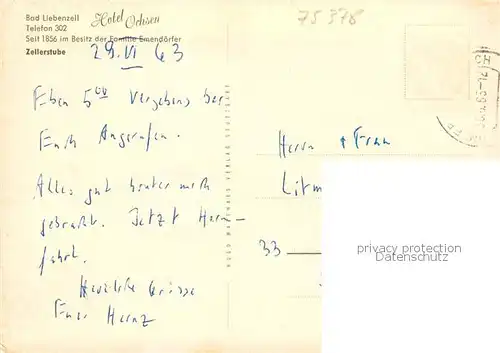 Bad Liebenzell Hotel Ochsen
Telefon 302
Seit 1856 im Besitz der Familie Emendörfer
Zellerstube
75378
29. VI 63
Eben 5⁰⁰ Vergebens bei
Euch Angerufen.
Alles gut hinter mich
gebracht. Jetzt Heim-
fahrt.
Herzliche Grüsse
Euer Heinz
HUGO MATTHAES VERLAG STUTTGART
Herrn + Frau
Litm
33
privacy protection
Datenschutz